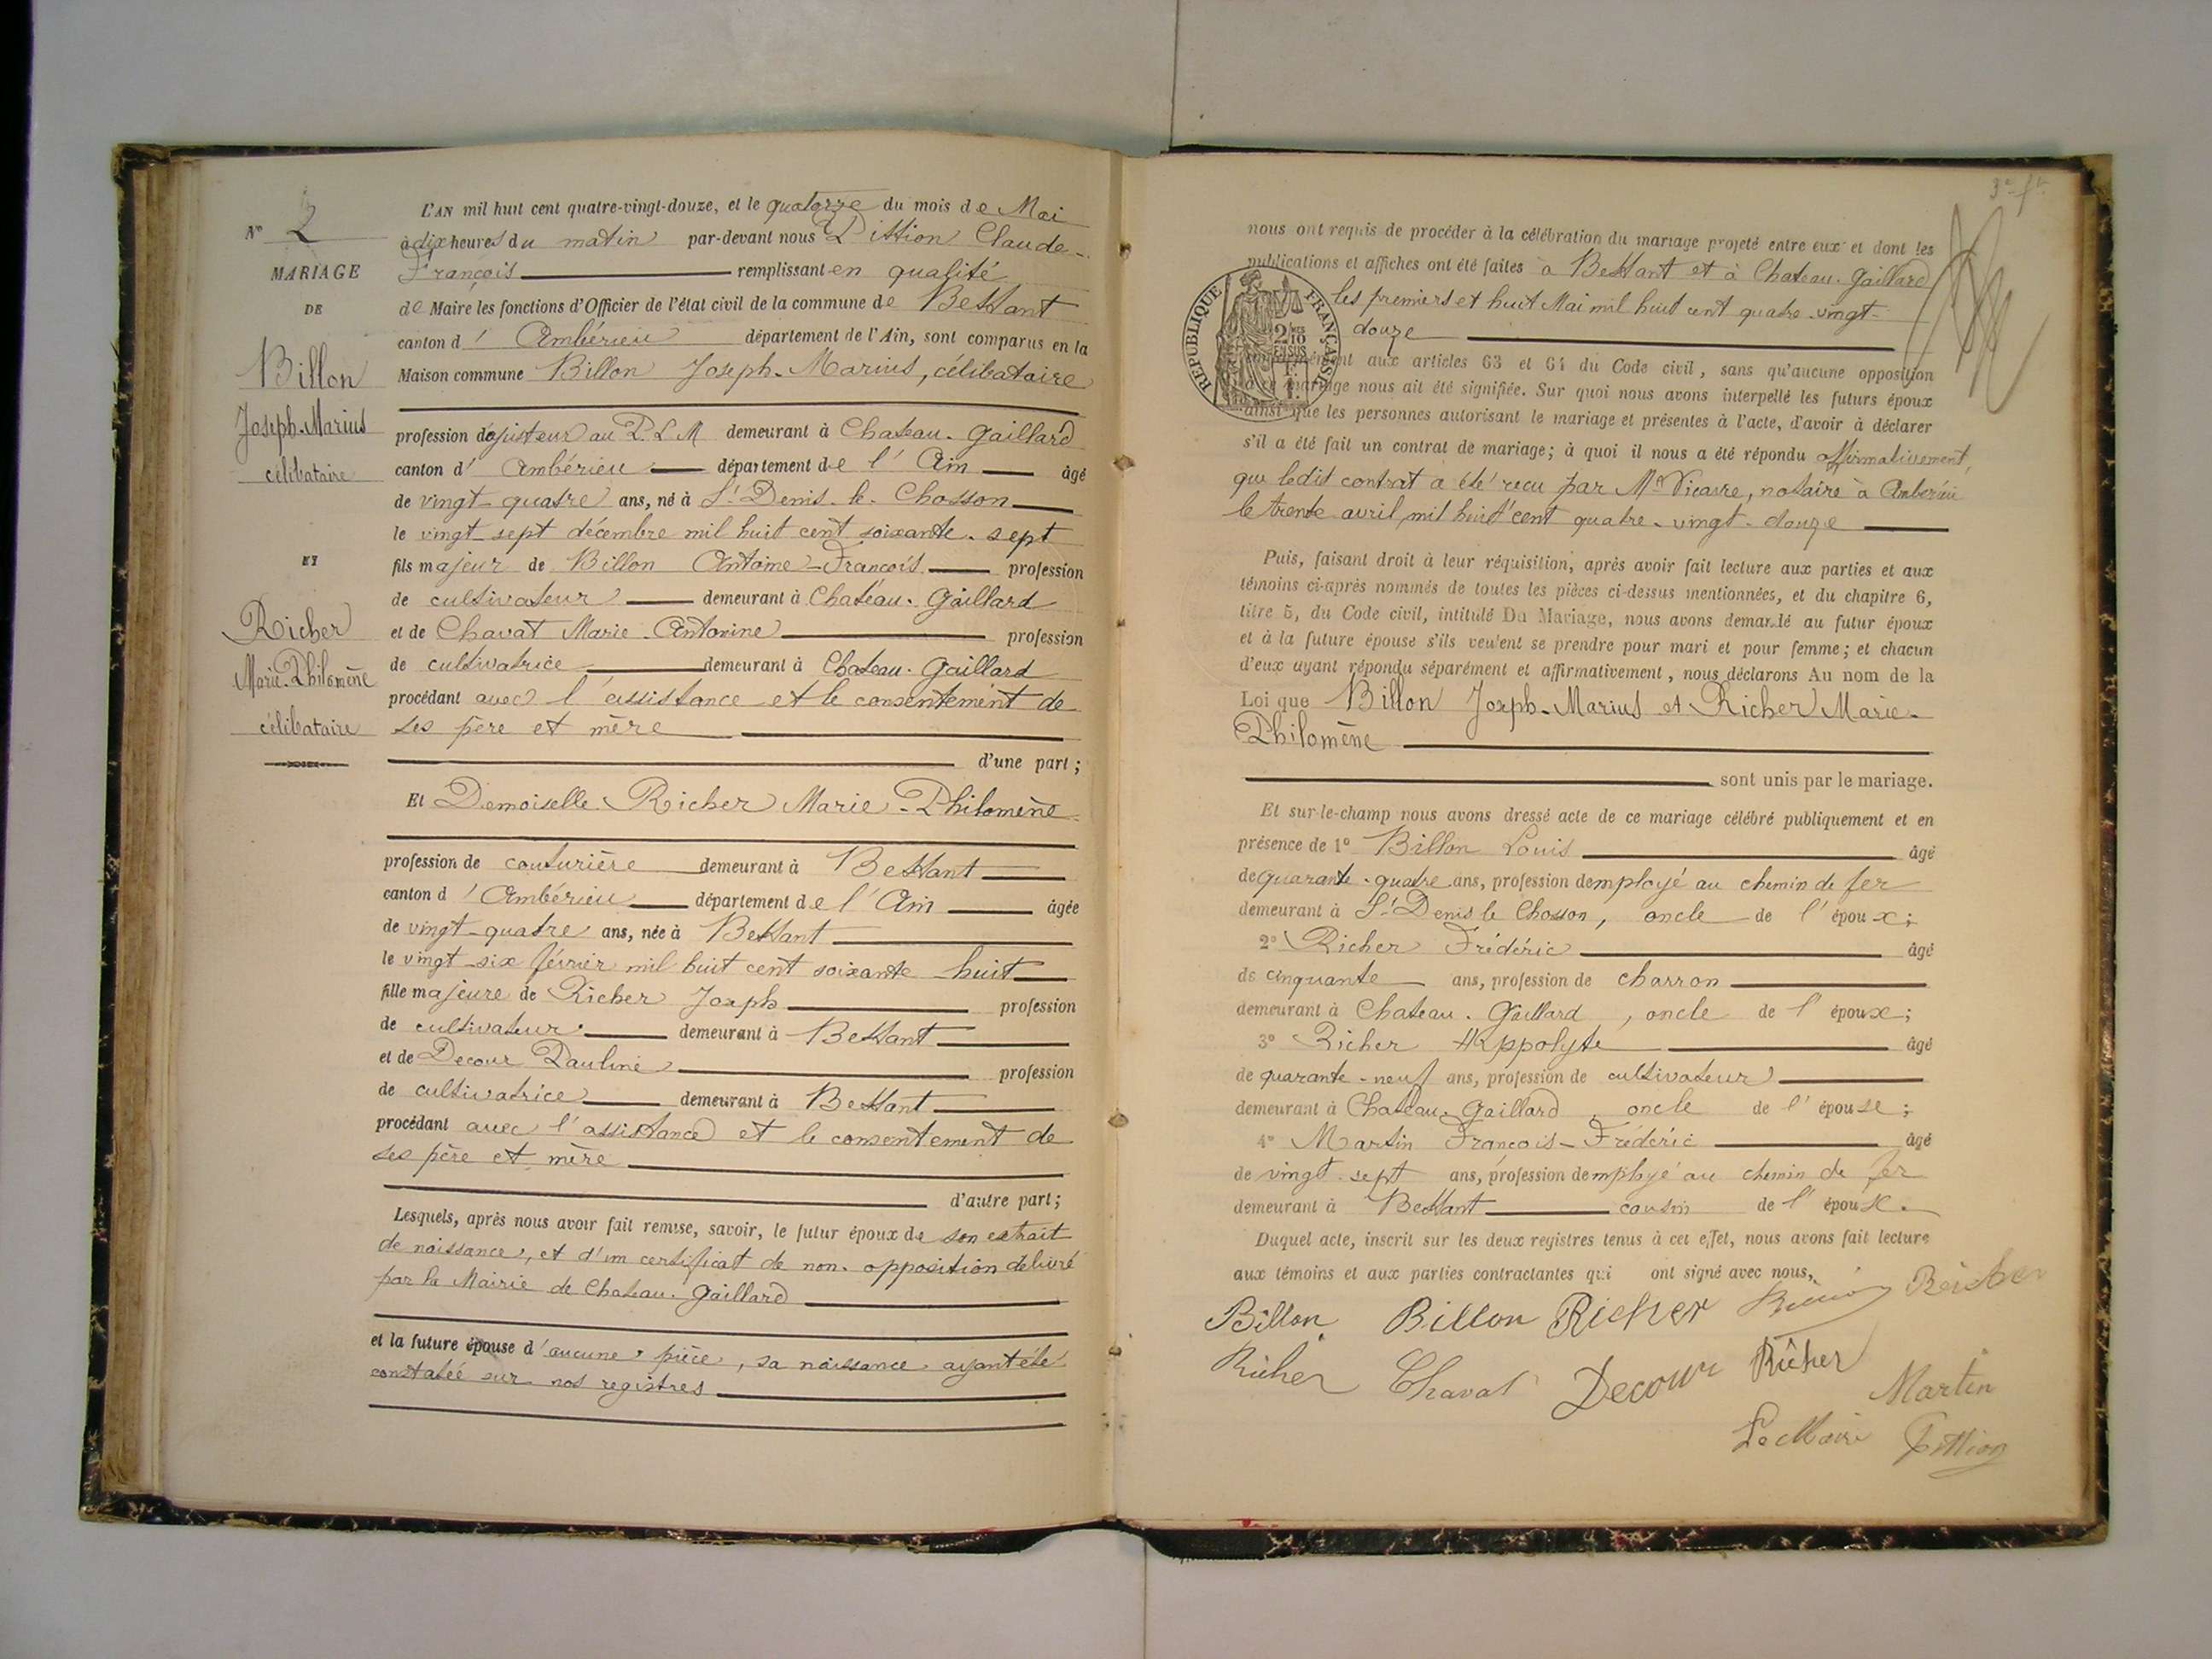 L'AN mil huit cent quatre-vingt-douze, et le quatorze du mois de Mai
à dix heures du matin par-devant nous Pittion Claude-
François remplissant en qualité
de Maire les fonctions d'Officier de l'état civil de la commune de Bettant
canton d'Ambérieu département de l'Ain, sont comparus en la
Maison commune Billon Joseph-Marius, célibataire
profession d'ajusteur au P.L.M demeurant à Chateau-Gaillard
canton d'Ambérieu département de l'Ain âgé
de vingt-quatre ans, né à St Denis-le-Chosson
le vingt-sept décembre mil huit cent soixante-sept
fils majeur de Billon Antoine-François profession
de cultivateur demeurant à Chateau-Gaillard
et de Chavat Marie-Antonine profession
de cultivatrice demeurant à Chateau-Gaillard
procédant avec l'assistance et le consentement de
ses père et mère
d'une part;
Et Demoiselle Richer Marie-Philomène
profession de couturière demeurant à Bettant
canton d'Ambérieu département de l'Ain âgée
de vingt-quatre ans, née à Bettant
le vingt-six février mil huit cent soixante-huit
fille majeure de Richer Joseph profession
de cultivateur demeurant à Bettant
et de Decour Pauline profession
de cultivatrice demeurant à Bettant
procédant avec l'assistance et le consentement de
ses père et mère
d'autre part;
Lesquels, après nous avoir fait remise, savoir, le futur époux de son extrait
de naissance, et d'un certificat de non-opposition délivré
par la Mairie de Chateau-Gaillard
et la future épouse d'aucune pièce, sa naissance ayant été
constatée sur nos registres
N° 2
MARIAGE
DE
Billon
Joseph-Marius
célibataire
ET
Richer
Marie-Philomène
célibataire
nous ont requis de procéder à la célébration du mariage projeté entre eux et dont les
publications et affiches ont été faites à Bettant et à Chateau-Gaillard
les premiers et huit Mai mil huit cent quatre-vingt-
douze
aux articles 63 et 64 du Code civil, sans qu'aucune opposition
mariage nous ait été signifiée. Sur quoi nous avons interpellé les futurs époux
ainsi que les personnes autorisant le mariage et présentes à l'acte, d'avoir à déclarer
s'il a été fait un contrat de mariage; à quoi il nous a été répondu affirmativement,
que ledit contrat a été reçu par Me Vicaire, notaire à Ambérieu
le trente avril mil huit cent quatre-vingt-douze
Puis, faisant droit à leur réquisition, après avoir fait lecture aux parties et aux
témoins ci-après nommés de toutes les pièces ci-dessus mentionnées, et du chapitre 6,
titre 5, du Code civil, intitulé Du Mariage, nous avons demandé au futur époux
et à la future épouse s'ils veulent se prendre pour mari et pour femme; et chacun
d'eux ayant répondu séparément et affirmativement, nous déclarons Au nom de la
Loi que Billon Joseph-Marius et Richer Marie-
Philomène
sont unis par le mariage.
Et sur-le-champ nous avons dressé acte de ce mariage célébré publiquement et en
présence de 1° Billon Louis âgé
de quarante-quatre ans, profession d'employé au chemin de fer
demeurant à St Denis le Chosson, oncle de l'époux;
2° Richer Frédéric âgé
de cinquante ans, profession de charron
demeurant à Chateau-Gaillard, oncle de l'époux;
3° Richer Hyppolyte âgé
de quarante-neuf ans, profession de cultivateur
demeurant à Chateau-Gaillard, oncle de l'épouse;
4° Martin François-Frédéric âgé
de vingt-sept ans, profession d'employé au chemin de fer
demeurant à Bettant cousin de l'épouse.
Duquel acte, inscrit sur les deux registres tenus à cet effet, nous avons fait lecture
aux témoins et aux parties contractantes qui ont signé avec nous,
Billon Billon Richer Richer
Richer Chavat Decour Richer Martin
Le Maire Pittion
RÉPUBLIQUE FRANÇAISE
2/10
EN SUS